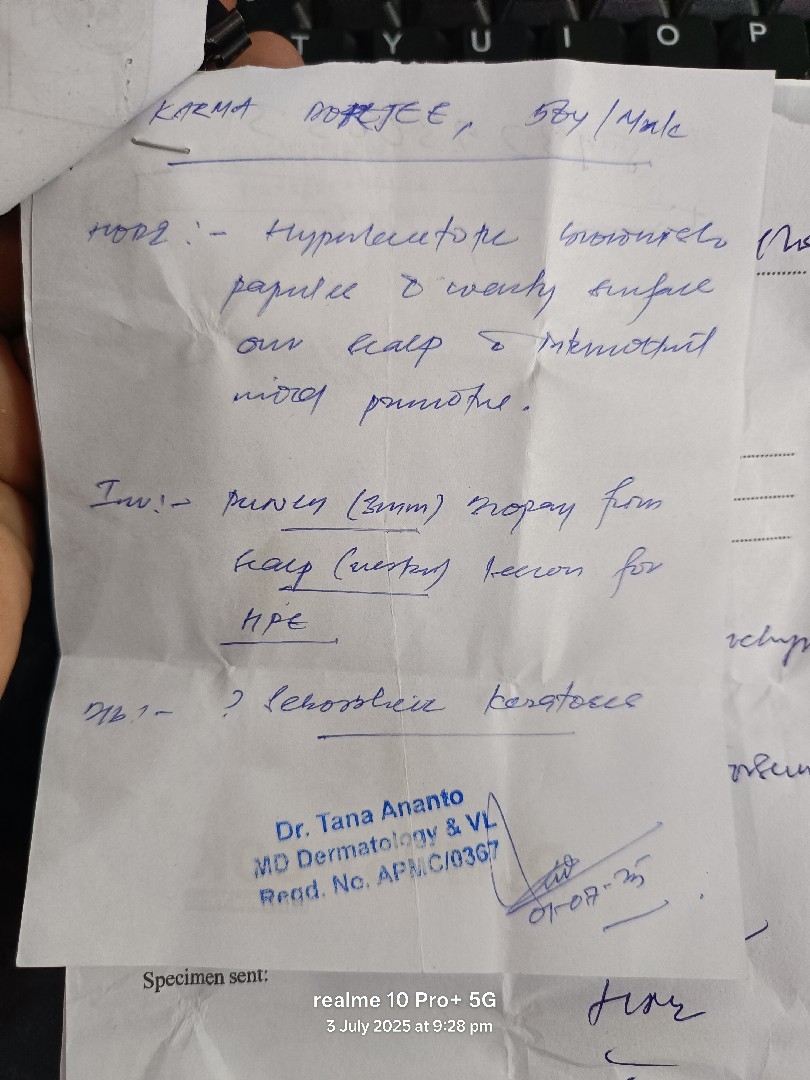 T Y U I O P
KARMA DORJEE, /Male
:- Hyperkeratotic brownish
papules c̄ warty surface
over scalp c̄ intermittent
mild pruritus.
Inv:- Punch (3mm) Biopsy from
scalp (vertex) lesion for
HPE
:- ? Seborrheic Keratosis
Dr. Tana Ananto
MD Dermatology & VL
Regd. No. APMC/0367
01-07-25
Specimen sent:
realme 10 Pro+ 5G
3 July 2025 at 9:28 pm